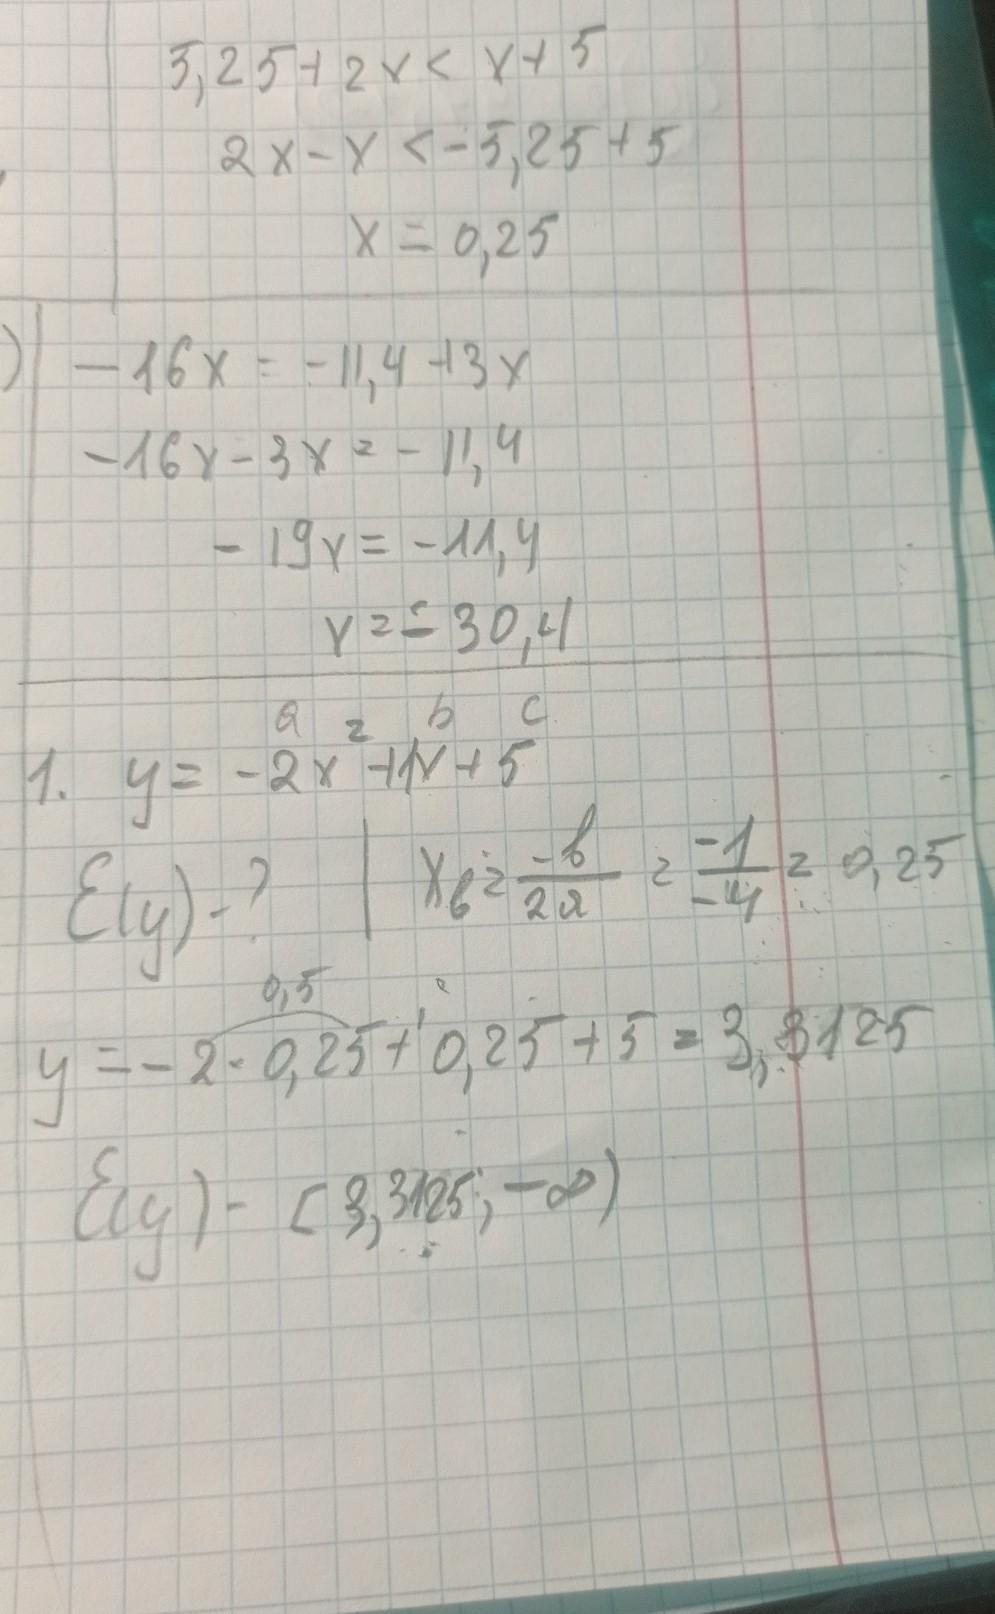 5,25+2x< x+5
2x-x <-5,25+5
x = 0,25
) -16x = -11,4+3x
-16x-3x=-11,4
-19x=-11,4
x=-30,4
a b c
1. y= -2x²+1x+5
E(y)-? | xв= -b/2a = -1/-4 = 0,25
0,5
y=-2·0,25+0,25+5=3,3125
E(y)- [3,3125; -∞)